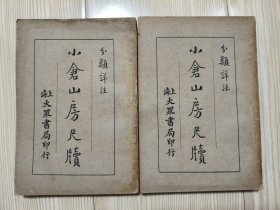 分類詳注
小倉山房尺牘
上海大眾書局印行
分類詳注
小倉山房尺牘
上海大眾書局印行